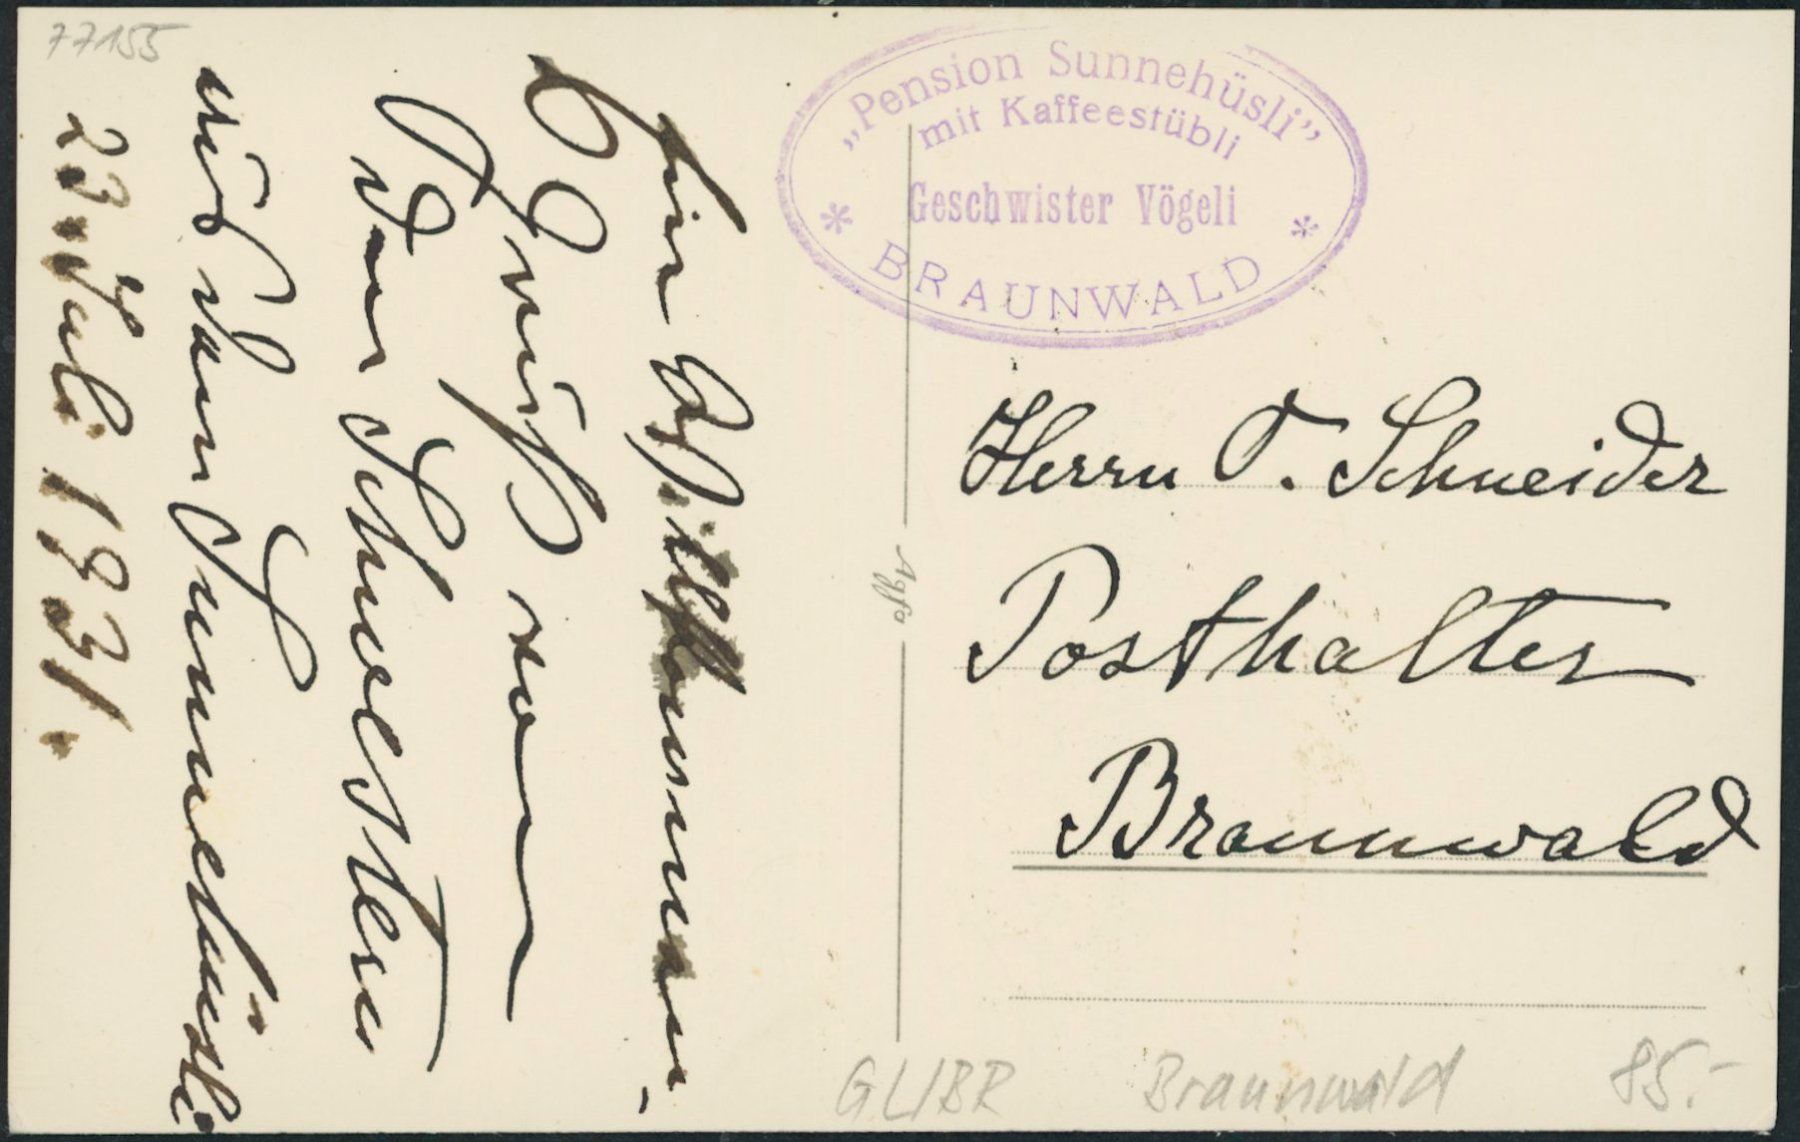 77155
„Pension Sunnehüsli”
mit Kaffeestübli
* Geschwister Vögeli *
BRAUNWALD
Ein Willkommen-
Gruß von
den Schwestern
aus dem Sunnehüsli
23. Juli 1931.
Herrn O. Schneider
Posthalter
Braunwald
Agfa
GLIBR Braunwald 85.-